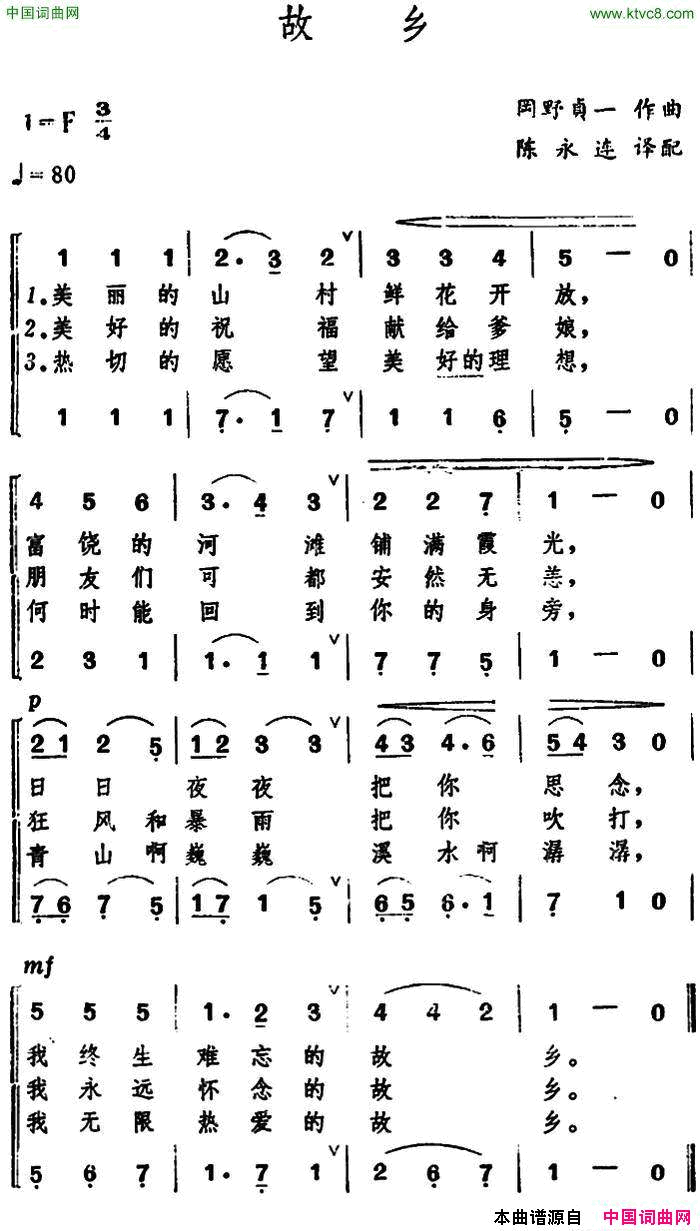 中国词曲网
www.ktvc8.com
故 乡
1=F 3/4
岡野貞一 作曲
陈永连 译配
♩=80
1 1 1 | 2. 3 2 ∨ | 3 3 4 | 5 — 0
1.美丽的山村鲜花开放，
2.美好的祝福献给爹娘，
3.热切的愿望美好的理想，
1 1 1 | 7̣. 1 7̣ ∨ | 1 1 6̣ | 5̣ — 0
4 5 6 | 3. 4 3 ∨ | 2 2 7̣ | 1 — 0
富饶的河滩铺满霞光，
朋友们可都安然无恙，
何时能回到你的身旁，
2 3 1 | 1. 1 1 ∨ | 7̣ 7̣ 5̣ | 1 — 0
p
2 1 2 5̣ | 1 2 3 3 ∨ | 4 3 4. 6̣ | 5 4 3 0
日日夜夜把你思念，
狂风和暴雨把你吹打，
青山啊巍巍溪水啊潺潺，
7̣ 6̣ 7̣ 5̣ | 1 7̣ 1 5̣ ∨ | 6̣ 5̣ 6̣. 1 | 7̣ 1 0
mf
5 5 5 | 1. 2 3 ∨ | 4 4 2 | 1 — 0
我终生难忘的故乡。
我永远怀念的故乡。
我无限热爱的故乡。
5̣ 6̣ 7̣ | 1. 7̣ 1 ∨ | 2 6̣ 7̣ | 1 — 0
本曲谱源自 中国词曲网